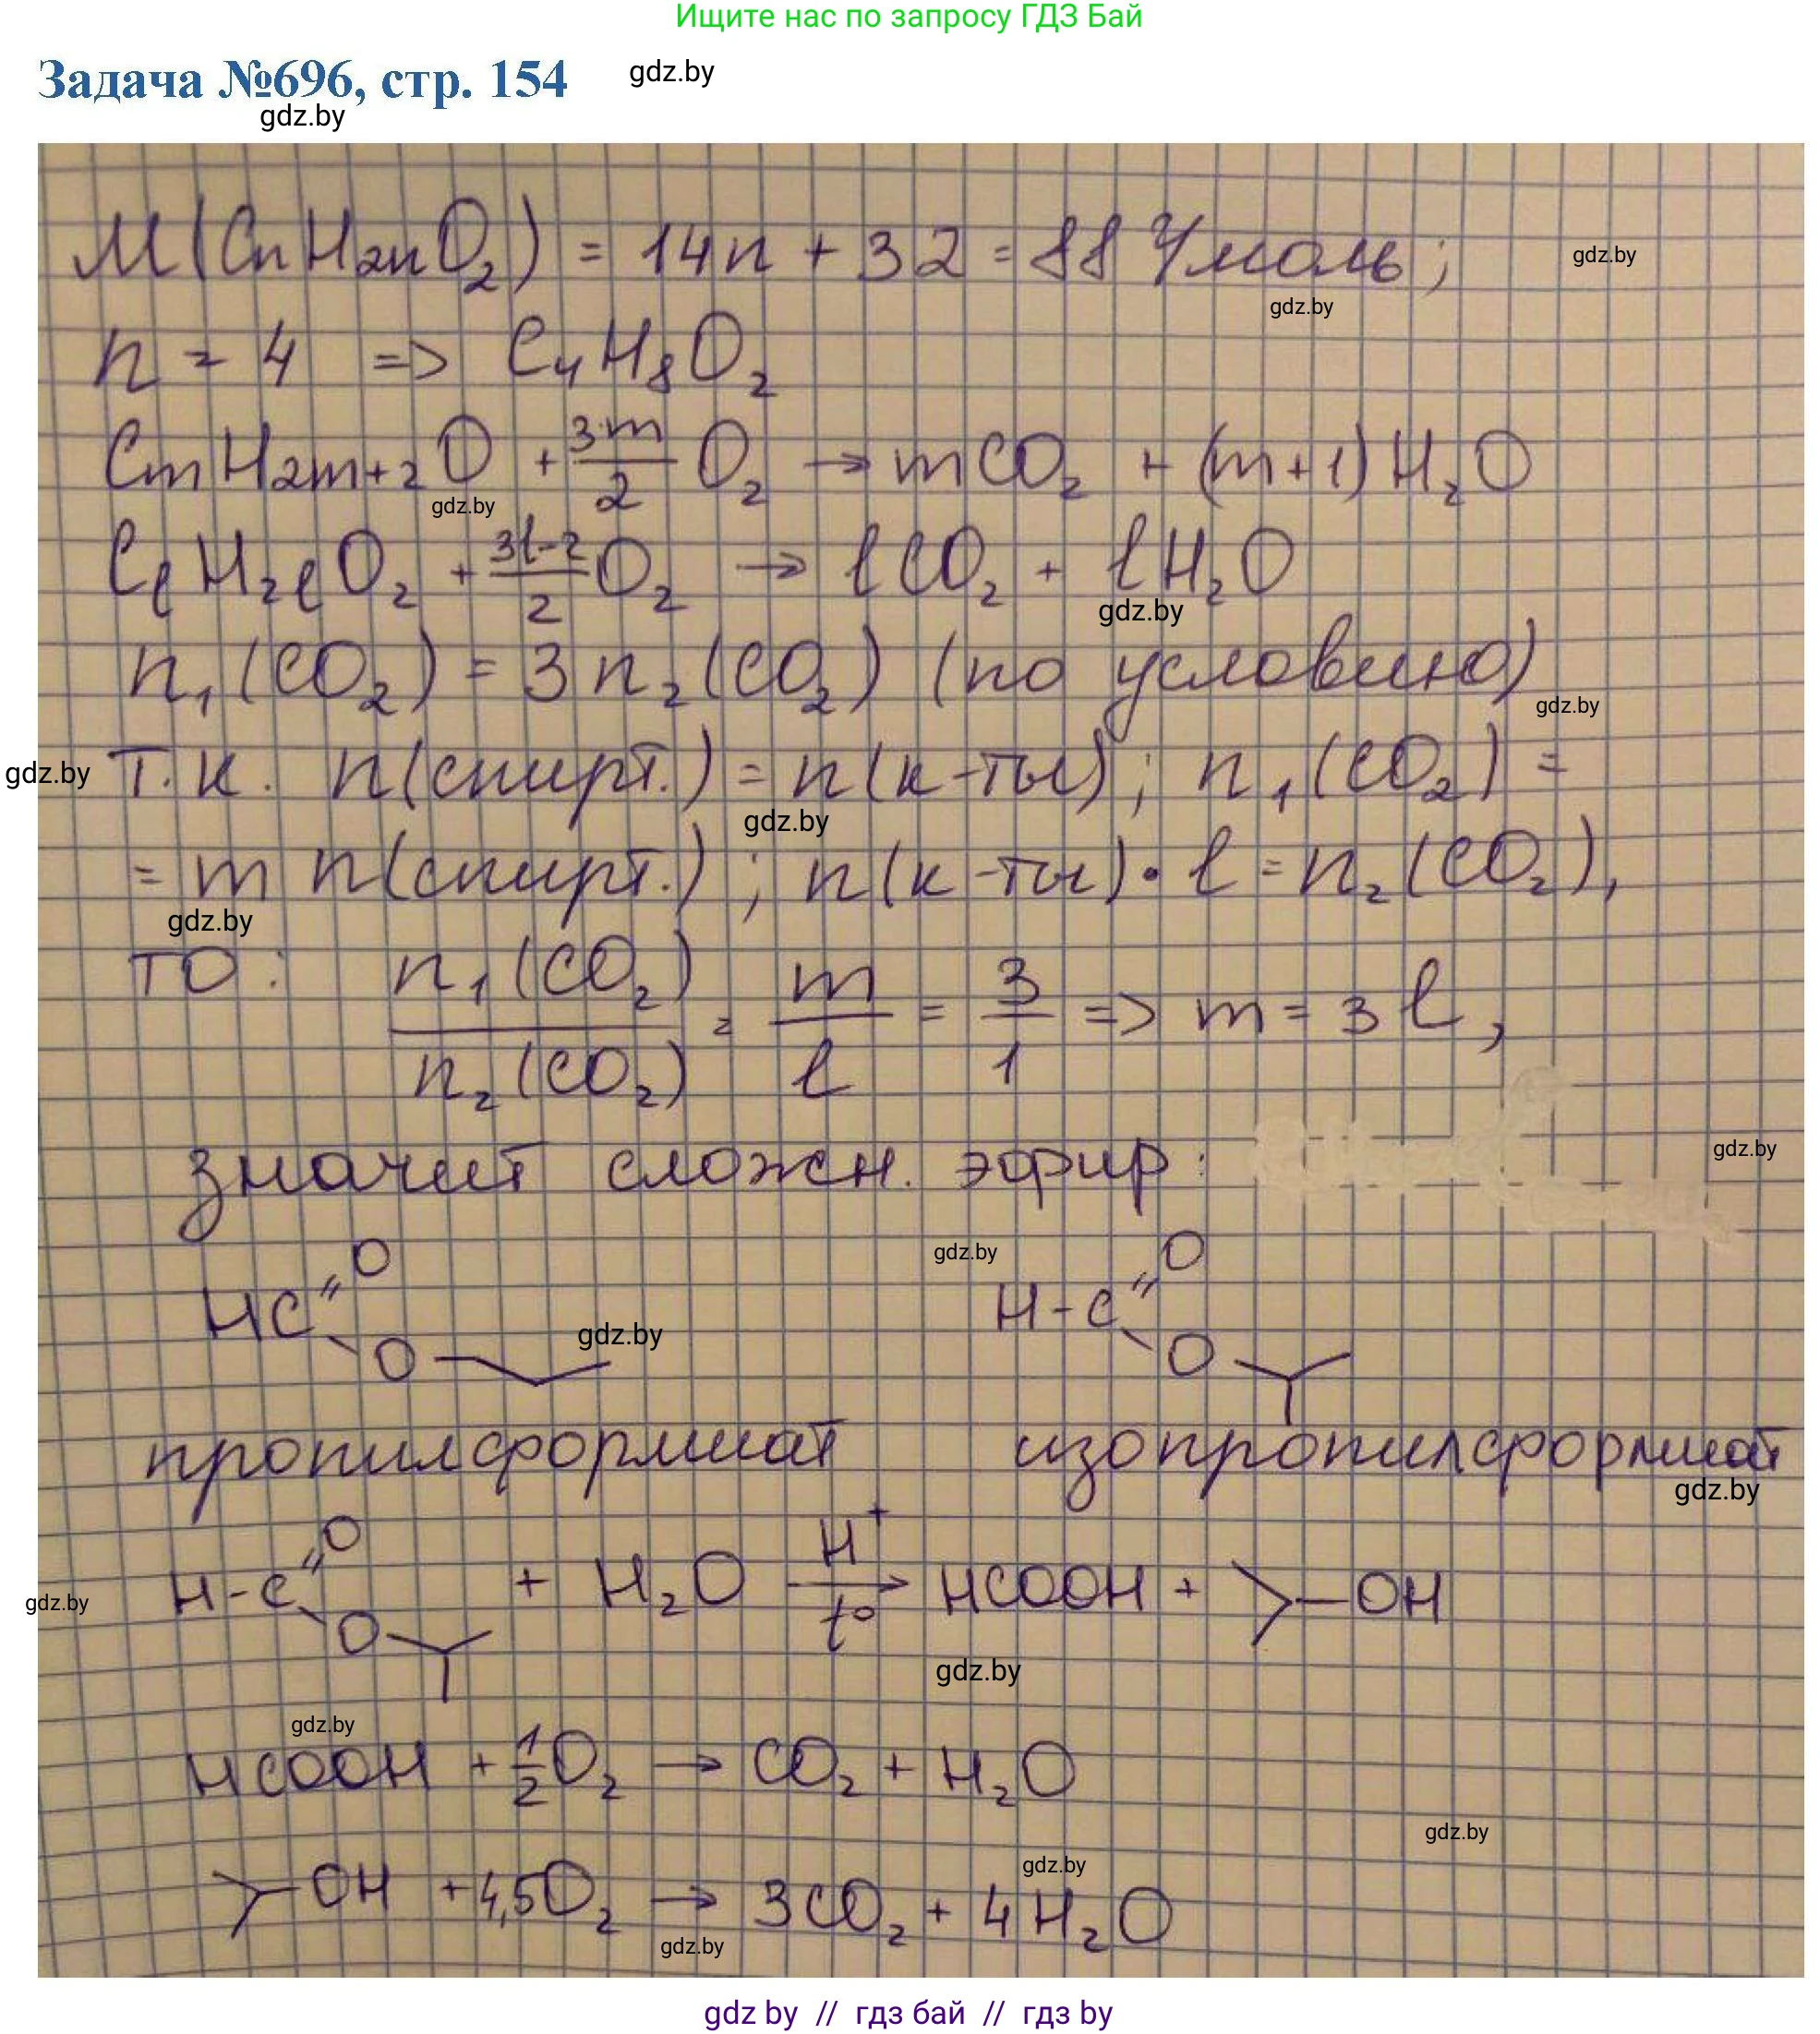 Ищите нас по запросу ГДЗ Бай
Задача №696, стр. 154
gdz.by
gdz.by
M(CnH2nO2) = 14n + 32 = 88 г/моль;
gdz.by
gdz.by
n = 4 => C4H8O2
CmH2m+2O + 3m/2 O2 → mCO2 + (m+1)H2O
gdz.by
ClH2lO2 + 3l-2/2 O2 → lCO2 + lH2O
gdz.by
n1(CO2) = 3n2(CO2) (по условию)
gdz.by
gdz.by
Т.к. n(спирт.) = n(к-ты); n1(CO2) =
gdz.by
= m n(спирт.); n(к-ты)·l = n2(CO2),
gdz.by
то: n1(CO2)/n2(CO2) = m/l = 3/1 => m = 3l,
значит сложн. эфир:
gdz.by
HC=O O
gdz.by
H-C=O O
gdz.by
пропилформиат изопропилформиат
gdz.by
H-C=O O + H2O H+ t° → HCOOH + >-OH
gdz.by
gdz.by
gdz.by
HCOOH + 1/2 O2 → CO2 + H2O
gdz.by
gdz.by
>-OH + 4,5O2 → 3CO2 + 4H2O
gdz.by
gdz by // гдз бай // гдз by